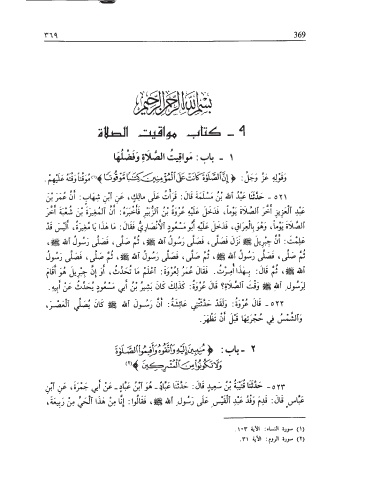 ٣٦٩ 369
بسم الله الرحمن الرحيم
٩ - كتاب مواقيت الصلاة
١ - باب: مَوَاقِيتُ الصَّلاَةِ وَفَضْلُهَا
وَقَوْلِهِ عَزَّ وَجَلَّ: ﴿إِنَّ الصَّلَوٰةَ كَانَتْ عَلَى الْمُؤْمِنِينَ كِتَٰبًا مَّوْقُوتًا﴾(١) مُوَقَّتاً وَقَّتَهُ عَلَيْهِمْ.
٥٢١ - حَدَّثَنَا عَبْدُ اللهِ بْنُ مَسْلَمَةَ قَالَ: قَرَأْتُ عَلَى مَالِكٍ، عَنِ ابْنِ شِهَابٍ: أَنَّ عُمَرَ بْنَ
عَبْدِ الْعَزِيزِ أَخَّرَ الصَّلاَةَ يَوْماً، فَدَخَلَ عَلَيْهِ عُرْوَةُ بْنُ الزُّبَيْرِ فَأَخْبَرَهُ: أَنَّ الْمُغِيرَةَ بْنَ شُعْبَةَ أَخَّرَ
الصَّلاَةَ يَوْماً، وَهُوَ بِالْعِرَاقِ، فَدَخَلَ عَلَيْهِ أَبُو مَسْعُودٍ الأَنْصَارِيُّ فَقَالَ: مَا هَذَا يَا مُغِيرَةُ، أَلَيْسَ قَدْ
عَلِمْتَ: أَنَّ جِبْرِيلَ نَزَلَ فَصَلَّى، فَصَلَّى رَسُولُ اللهِ ﷺ، ثُمَّ صَلَّى، فَصَلَّى رَسُولُ اللهِ ﷺ،
ثُمَّ صَلَّى، فَصَلَّى رَسُولُ اللهِ ﷺ، ثُمَّ صَلَّى، فَصَلَّى رَسُولُ اللهِ ﷺ، ثُمَّ صَلَّى، فَصَلَّى رَسُولُ
اللهِ ﷺ، ثُمَّ قَالَ: بِهَذَا أُمِرْتُ. فَقَالَ عُمَرُ لِعُرْوَةَ: اعْلَمْ مَا تُحَدِّثُ، أَوَ إِنَّ جِبْرِيلَ هُوَ أَقَامَ
لِرَسُولِ اللهِ ﷺ وَقْتَ الصَّلاَةِ؟ قَالَ عُرْوَةُ: كَذَلِكَ كَانَ بَشِيرُ بْنُ أَبِي مَسْعُودٍ يُحَدِّثُ عَنْ أَبِيهِ.
٥٢٢ - قَالَ عُرْوَةُ: وَلَقَدْ حَدَّثَتْنِي عَائِشَةُ: أَنَّ رَسُولَ اللهِ ﷺ كَانَ يُصَلِّي الْعَصْرَ،
وَالشَّمْسُ فِي حُجْرَتِهَا قَبْلَ أَنْ تَظْهَرَ.
٢ - باب: ﴿مُنِيبِينَ إِلَيْهِ وَاتَّقُوهُ وَأَقِيمُوا الصَّلَوٰةَ
وَلَا تَكُونُوا مِنَ الْمُشْرِكِينَ﴾(٢)
٥٢٣ - حَدَّثَنَا قُتَيْبَةُ بْنُ سَعِيدٍ قَالَ: حَدَّثَنَا عَبَّادٌ - هُوَ ابْنُ عَبَّادٍ - عَنْ أَبِي جَمْرَةَ، عَنِ ابْنِ
عَبَّاسٍ قَالَ: قَدِمَ وَفْدُ عَبْدِ الْقَيْسِ عَلَى رَسُولِ اللهِ ﷺ، فَقَالُوا: إِنَّا مِنْ هَذَا الْحَيِّ مِنْ رَبِيعَةَ،
(١) سورة النساء: الآية ١٠٣.
(٢) سورة الروم: الآية ٣١.